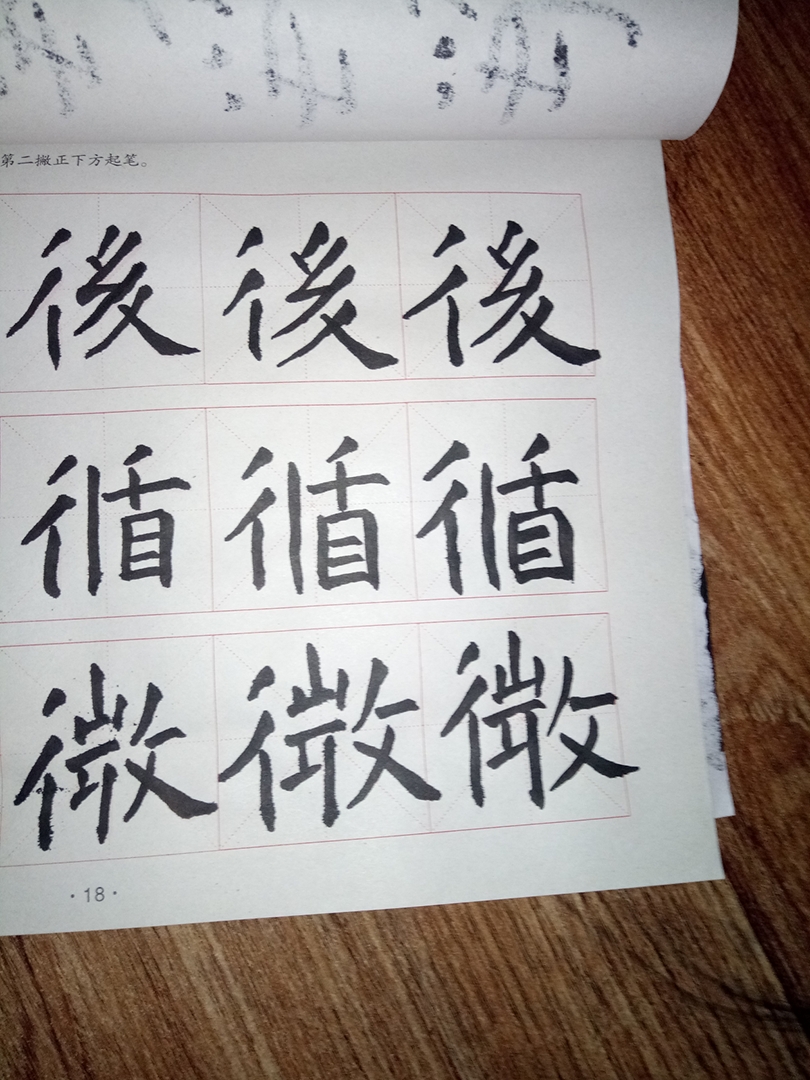 第二撇正下方起笔。
後後後
循循循
微微微
·18·